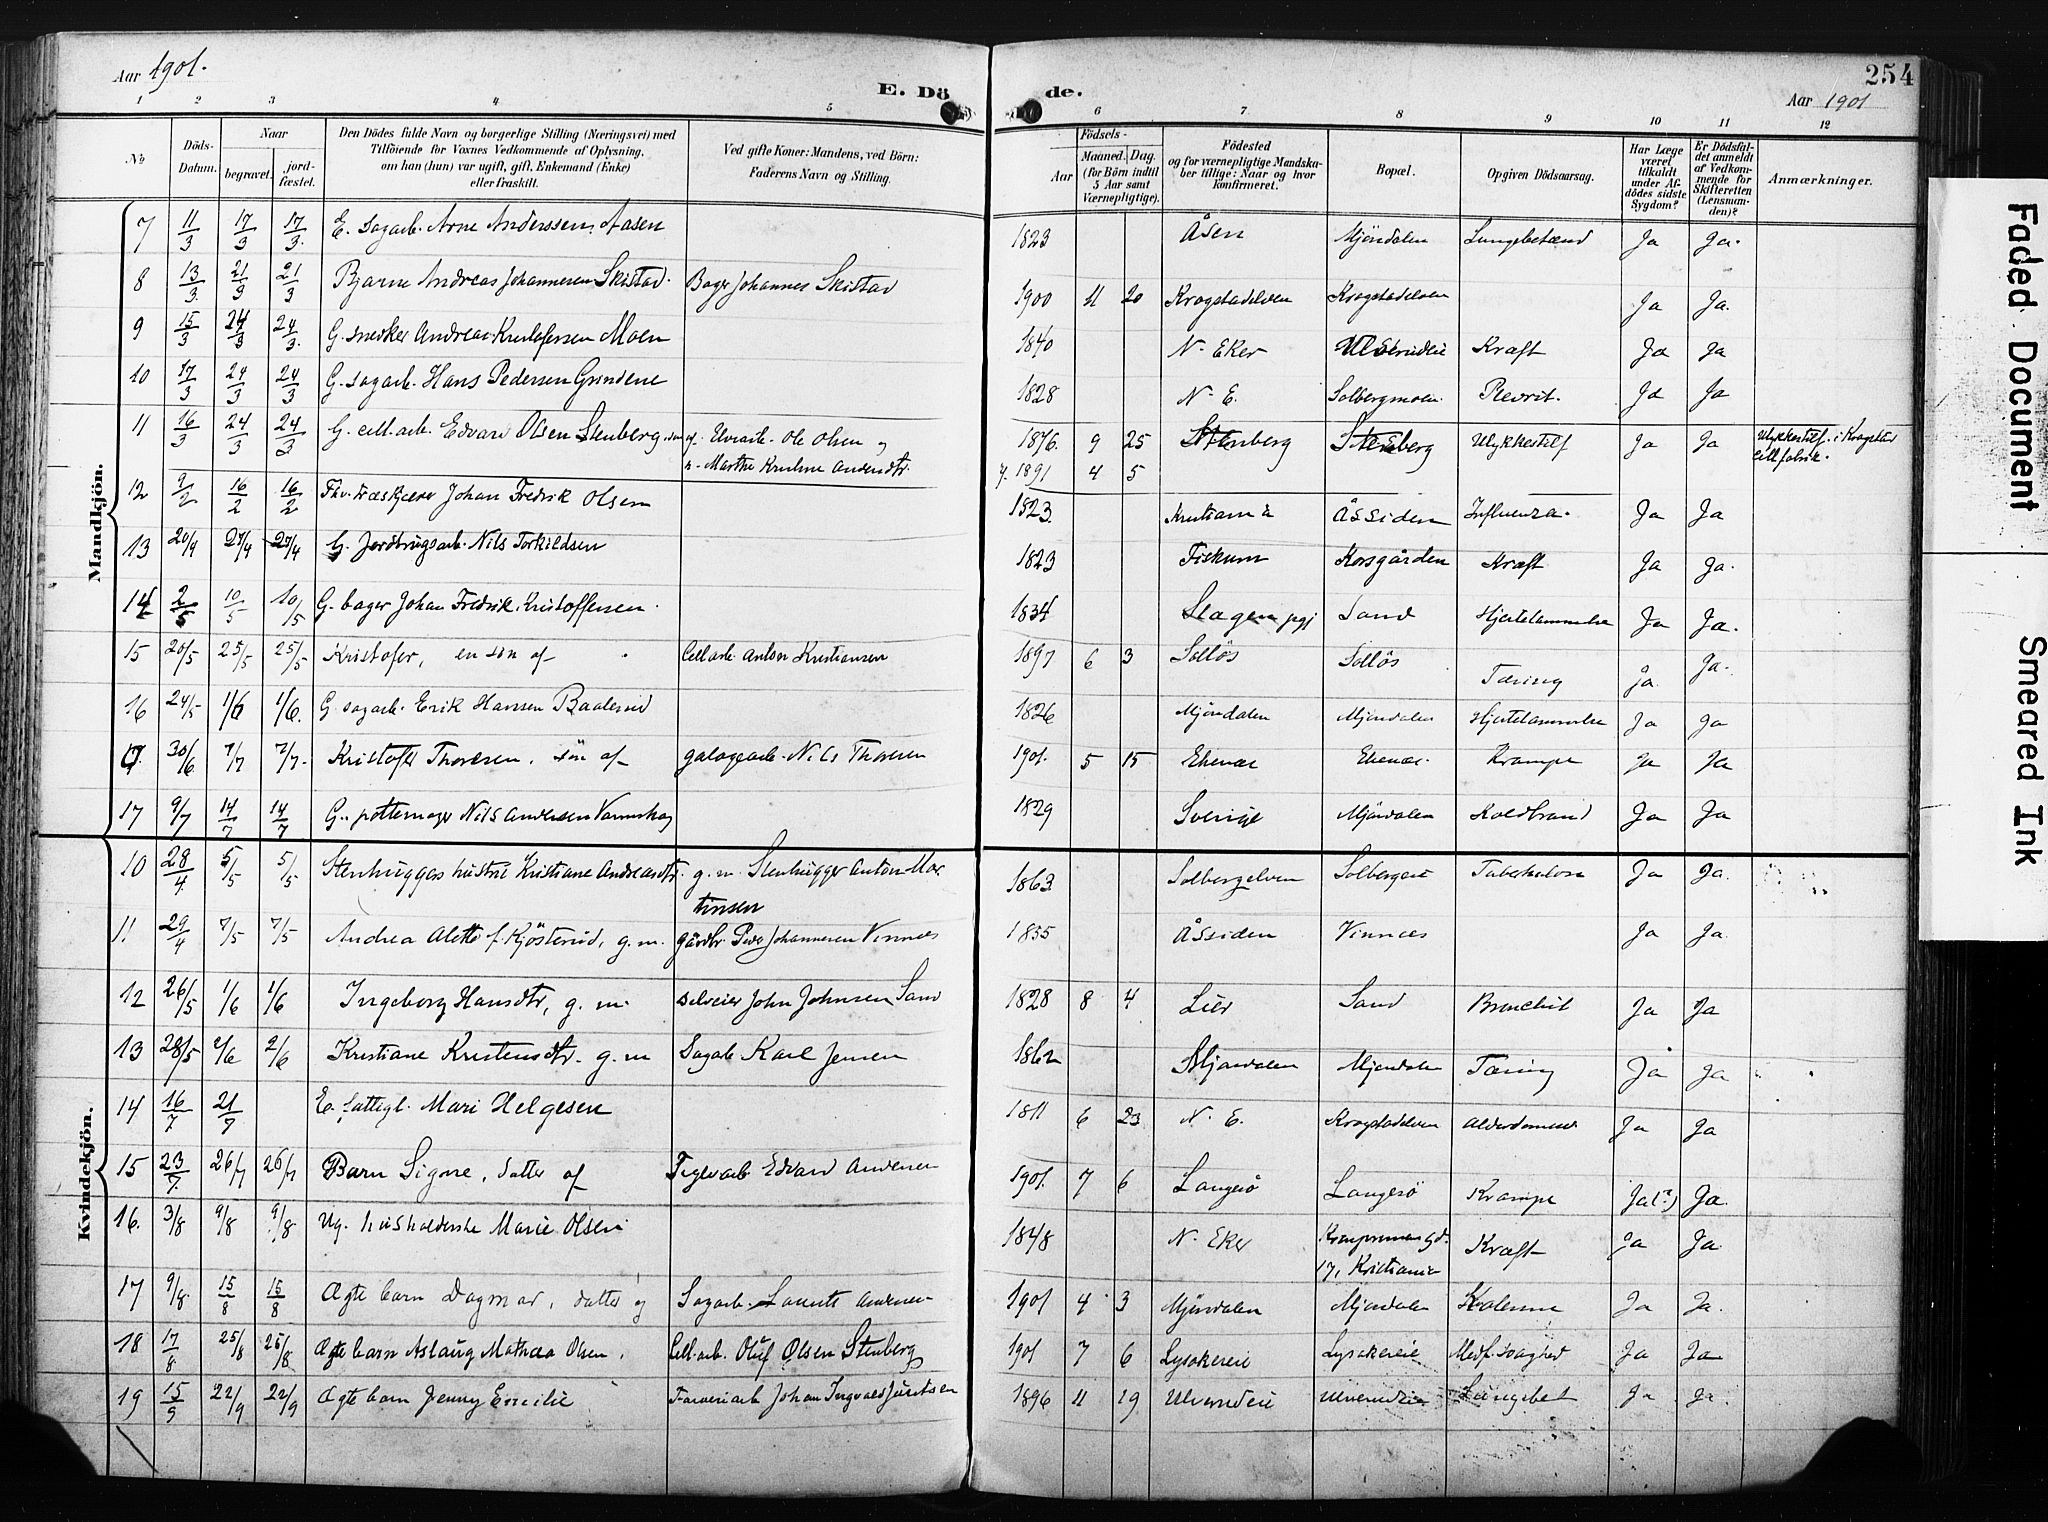 Aar 1901.
E. Dö de.
254
Aar 1901
1 2 3 4 5 6 7 8 9 10 11 12
No
Döds-Datum.
Naar
begravet.
jordfæstet.
Den Dödes fulde Navn og borgerlige Stilling (Næringsvei) med
Tilföiende for Voxnes Vedkommende af Oplysning,
om han (hun) var ugift, gift, Enkemand (Enke)
eller fraskilt.
Ved gifte Koner: Mandens, ved Börn:
Faderens Navn og Stilling.
Födsels-
Aar
Maaned. Dag.
(for Börn indtil
5 Aar samt
Værnepligtige).
Födested
og for værnepligtige Mandska-
ber tillige: Naar og hvor
konfirmeret.
Bopæl.
Opgiven Dödsaarsag.
Har Læge
været
tilkaldt
under Af-
dödes sidste
Sygdom?
Er Dödsfal-
det anmeldt
af Vedkom-
mende for
Skifteretten
(Lensman-
den)?
Anmærkninger.
Mandkjön.
7 11/3 17/3 17/3. E. sagarb. Arne Anderssen Aasen 1823 Åsen Mjöndalen Lungebetænd Ja Ja.
8 13/3. 21/3 21/3 Bjarne Andreas Johannesen Skistad. Bager Johannes Skistad 1900 11 20 Krogstadelven Krogstadelven Ja Ja.
9 15/3 24/3 24/3. G. snedker Andreas Kristofersen Moen 1840 N. Eker Ulverudeie Kræft Ja Ja
10 17/3 24/3 24/3 G. sagarb. Hans Pedersen Grindene 1828 N. E. Solbergmoen. Plevrit. Ja Ja
11 16/3 24/3 24/3 G. cell.arb. Edvard Olsen Stenberg, sön af Ole Olsen og 1876. 9 25 Stenberg Stenberg Ulykkestilf Ja Ja Ulykkestilf. i Krogstad
Cellfabrik.
1891 4 5
12 9/2 16/2 16/2 Fhv. træskjærer Johan Fredrik Olsen 1823. Kristiania Åssiden Influenza. Ja Ja
13 20/4 27/4 27/4 G. Jordbrugsarb. Nils Torkildsen 1823 Fiskum Korsgården Kræft Ja Ja.
14 2/5 10/5 10/5 G. bager Johan Fredrik Kristoffersen. 1834 Slagen pgj Sand Hjertelammelse Ja Ja.
15 20/5 25/5 25/5 Kristofer, en sön af Cellarb. Anton Kristiansen 1897 6 3 Solløs Solløs Tæring Ja. Ja.
16 24/5 1/6 1/6. G. sagarb. Erik Hansen Baalerud 1826 Mjöndalen Mjöndalen Hjertelammelse Ja Ja
30/6 7/7 7/7. Kristofer Thoresen, sön af Nils Thoresen 1901. 5 15 Ekenæs Ekenæs. Krampe Ja Ja
17 9/7 14/7 14/7 G. pottemager Nils Andersen 1829 Sverige Mjöndalen Koldbrand Ja Ja
Kvindekjön.
10 28/4 5/5 5/5 Stenhuggers hustru Kristiane Andreasdtr. g. m. Stenhugger Anton Mar
tinsen 1863 Solbergelven Solbergeie Tuberkulose Ja Ja.
11 29/4 7/5 7/5 Andrea Alette f. Kjösterud, g. m. gårdbr. Peder Johannesen Vinnæs 1855 Åssiden Vinnæs Ja Ja.
12 26/5 1/6 1/6 Ingeborg Hansdtr, g. m. selveier John Johnsen Sand 1828 8 4 Lier Sand Bronchit Ja Ja
13 28/5 2/6 2/6 Kristiane Kristensdtr. g. m Sagarb. Karl Jensen 1862 Mjöndalen Mjöndalen Tæring Ja Ja
14 16/7 21/7 E. fattigl. Mari Helgesen 1811 6 23 N. E. Krogstadelven Alderdomssv Ja Ja
15 23/7. 26/7 26/7 Barn Signe, datter af Teglv.arb Edvard Andersen 1901. 7 6 Langesö Langesö Krampe Ja(?) Ja.
16. 3/8 9/8 9/8 Ug. husholderske Marie Olsen 1848 N. Eker
17, Kristiania Kræft Ja Ja.
17 9/8. 15/8 15/8 Ægte barn Dagmar, datter af Sagarb. Laurits Andersen 1901 4 3 Mjöndalen Mjöndalen Kolerine Ja Ja.
18 17/8 25/8 25/8 Ægte barn Aslaug Mathea Olsen. Cell.arb. Oluf Olsen Stenberg 1901 7 6 Lysakereie Lysakereie Medf. svaghed Ja Ja
19 15/9 22/9 22/9 Ægte barn Jenny Emilie Farveriarb Johan Ingvald Juritsen 1896 11 19 Ulverudeie Ulverudeie Lungebet Ja Ja.
Faded Document
Smeared Ink